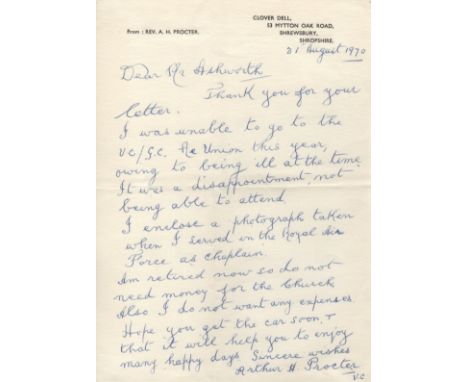 CLOVER DELL,
53 MYTTON OAK ROAD,
SHREWSBURY,
SHROPSHIRE.
From : REV. A. H. PROCTER.
31 August 1970
Dear Mr Ashworth
Thank you for your
letter.
I was unable to go to the
V.C/G.C. Re Union this year,
owing to being ill at the time
It was a disappointment, not
being able to attend
I enclose a photograph taken
when I served in the Royal Air
Force as chaplain.
Am retired now so do not
need money for the Church
Also I do not want any expenses.
Hope you get the car soon, &
that it will help you to enjoy
many happy days Sincere wishes
Arthur H. Procter
V.C